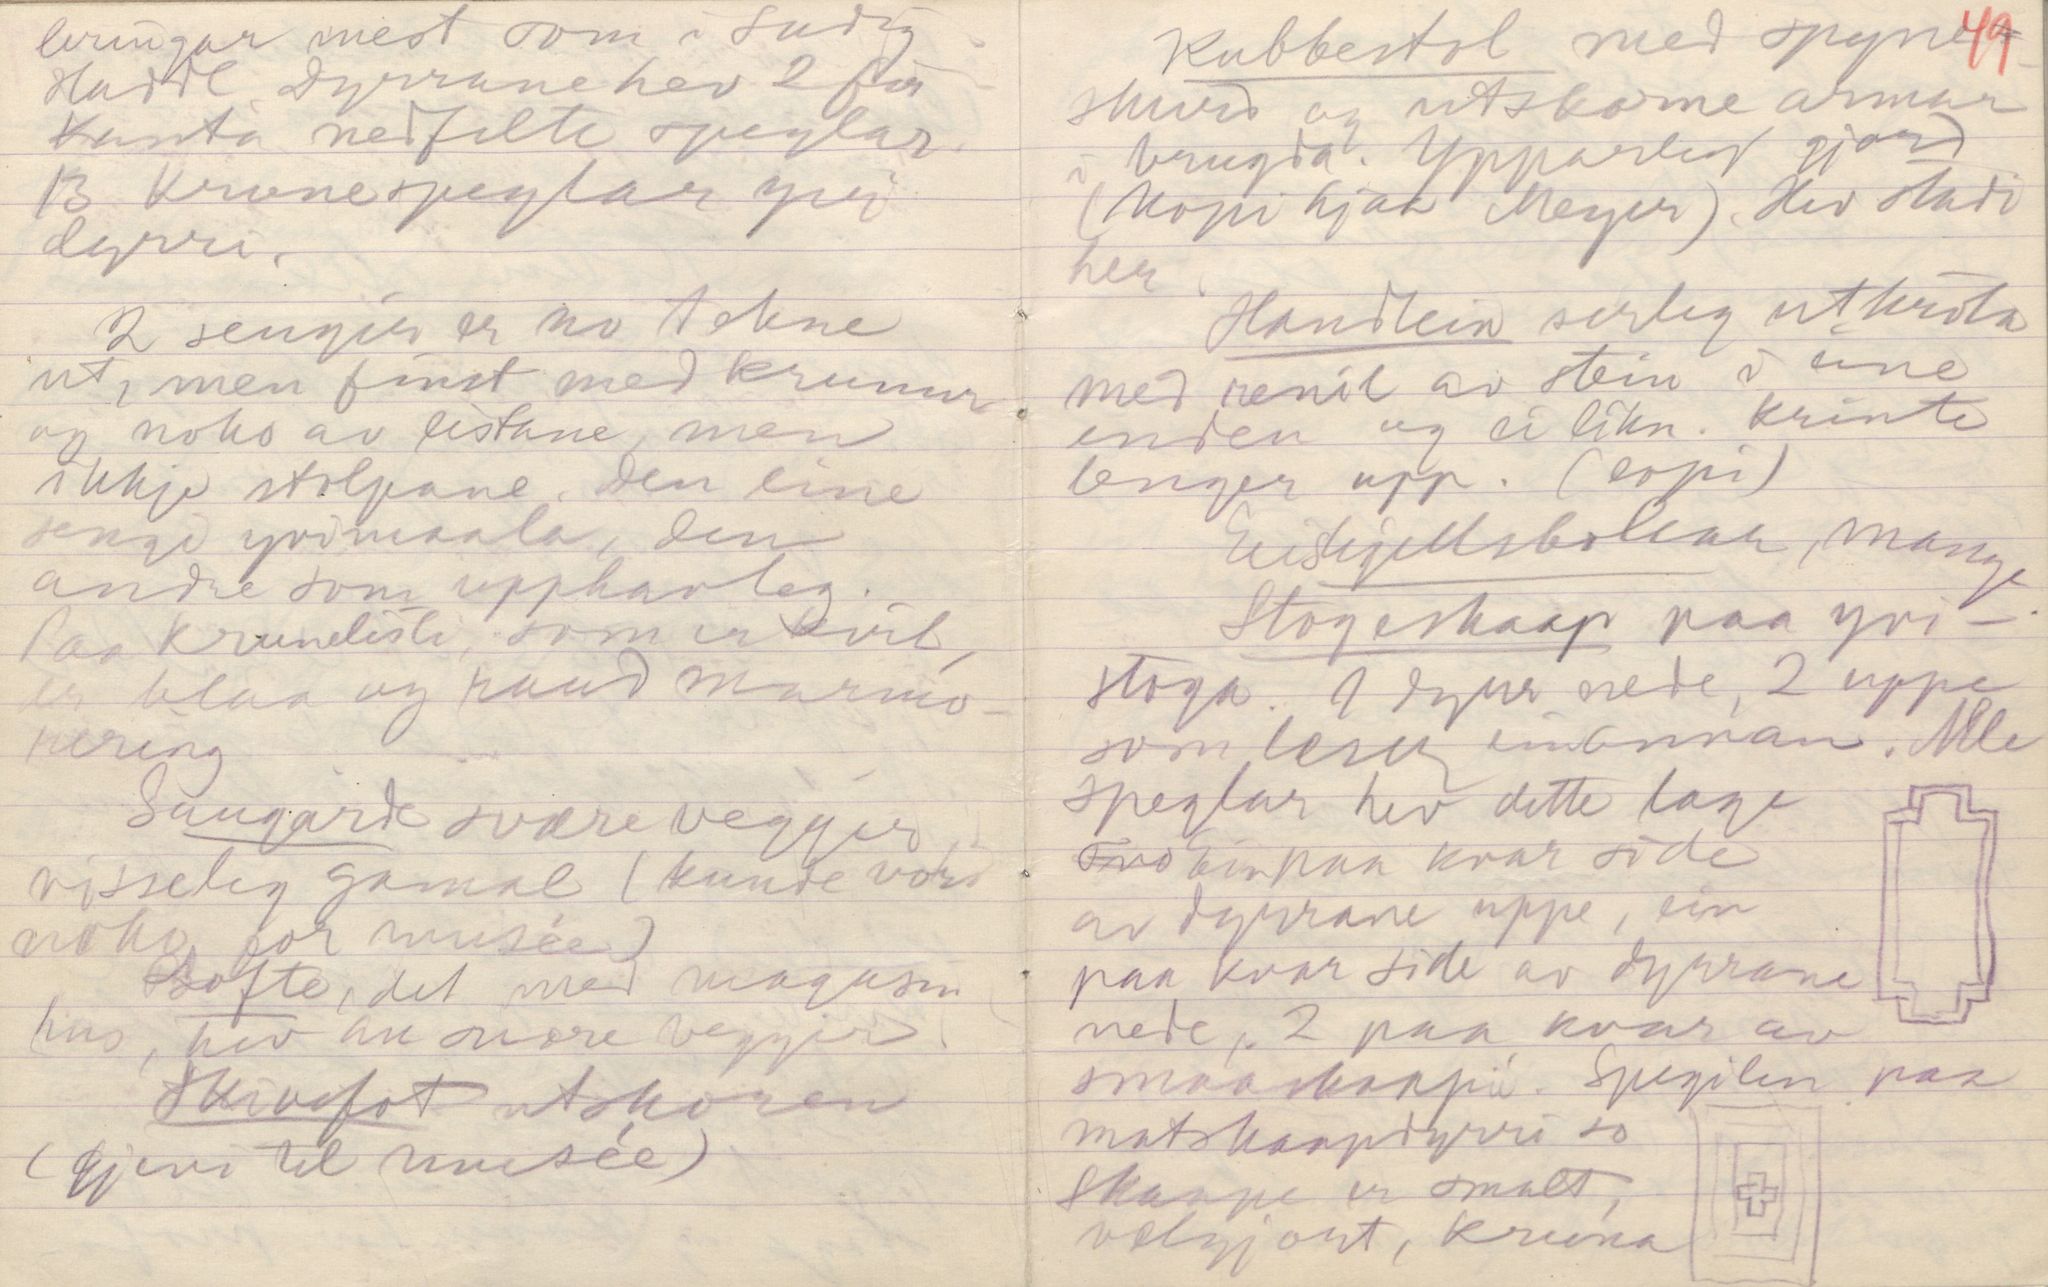 leringar mest som i Sudig
Haddl. Dyrrane hev 2 fir
kanta nedfelte speglar.
13 Krunespeglar yvi
dyrri.
2 sengjer er no tekne
ut, men finst med krunur
og noko av listane, men
ikkje stolpane. Den eine
sengi yvimaala, den
andre som upphavleg.
Paa krunelisti, som er kvit,
er blaa og raud marmo-
rering
Sengarde svære veggjer
visseleg gamal (kunde vore
noko for musée)
Lofte, det med magasin
hus, hev au svære veggjer.
Skivefot utskoren
(gjevi til musée)
49
Kubbestol med spyne-
skurd og utskorne armar
i brugda.Ypparleg gjord
(Kopi hjaa Meyer). Hev stadi
her.
Handlein serleg utkrota
med renil av stein i eine
enden og ei likn. krinte
lenger upp. (copi)
mange
Stogeskaap paa yvi-
stoga. 1 dyrr nede, 2 uppe
som læser einannan. Alle
speglar hev dette lage
ein paa kvar side
av dyrrane uppe, ein
paa kvar side av dyrrane
nede, 2 paa kvar av
smaaskaapi. Spegilen paa
matskaapdyrri so
Skaape er smalt,
velgjort, kruna